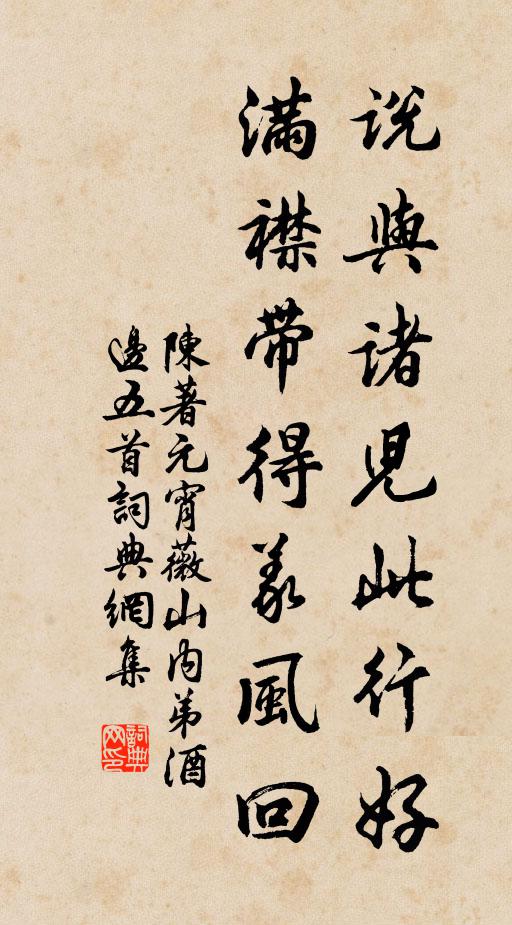 說與諸兒此行好
滿襟帶得義風回
陳著元宵薇山內弟酒
邊五首詞典網集
詞典
网印